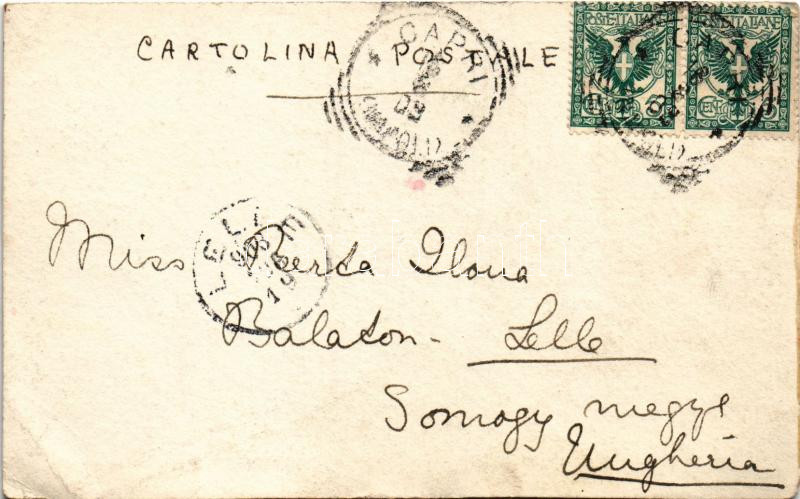 CARTOLINA POSTALE
CAPRI
(NAPOLI)
POSTE ITALIANE
CENT. 5
POSTE ITALIANE
CENT. 5
LELLE
Miss Ilona
Balaton-Lelle
Somogy megye
Ungheria